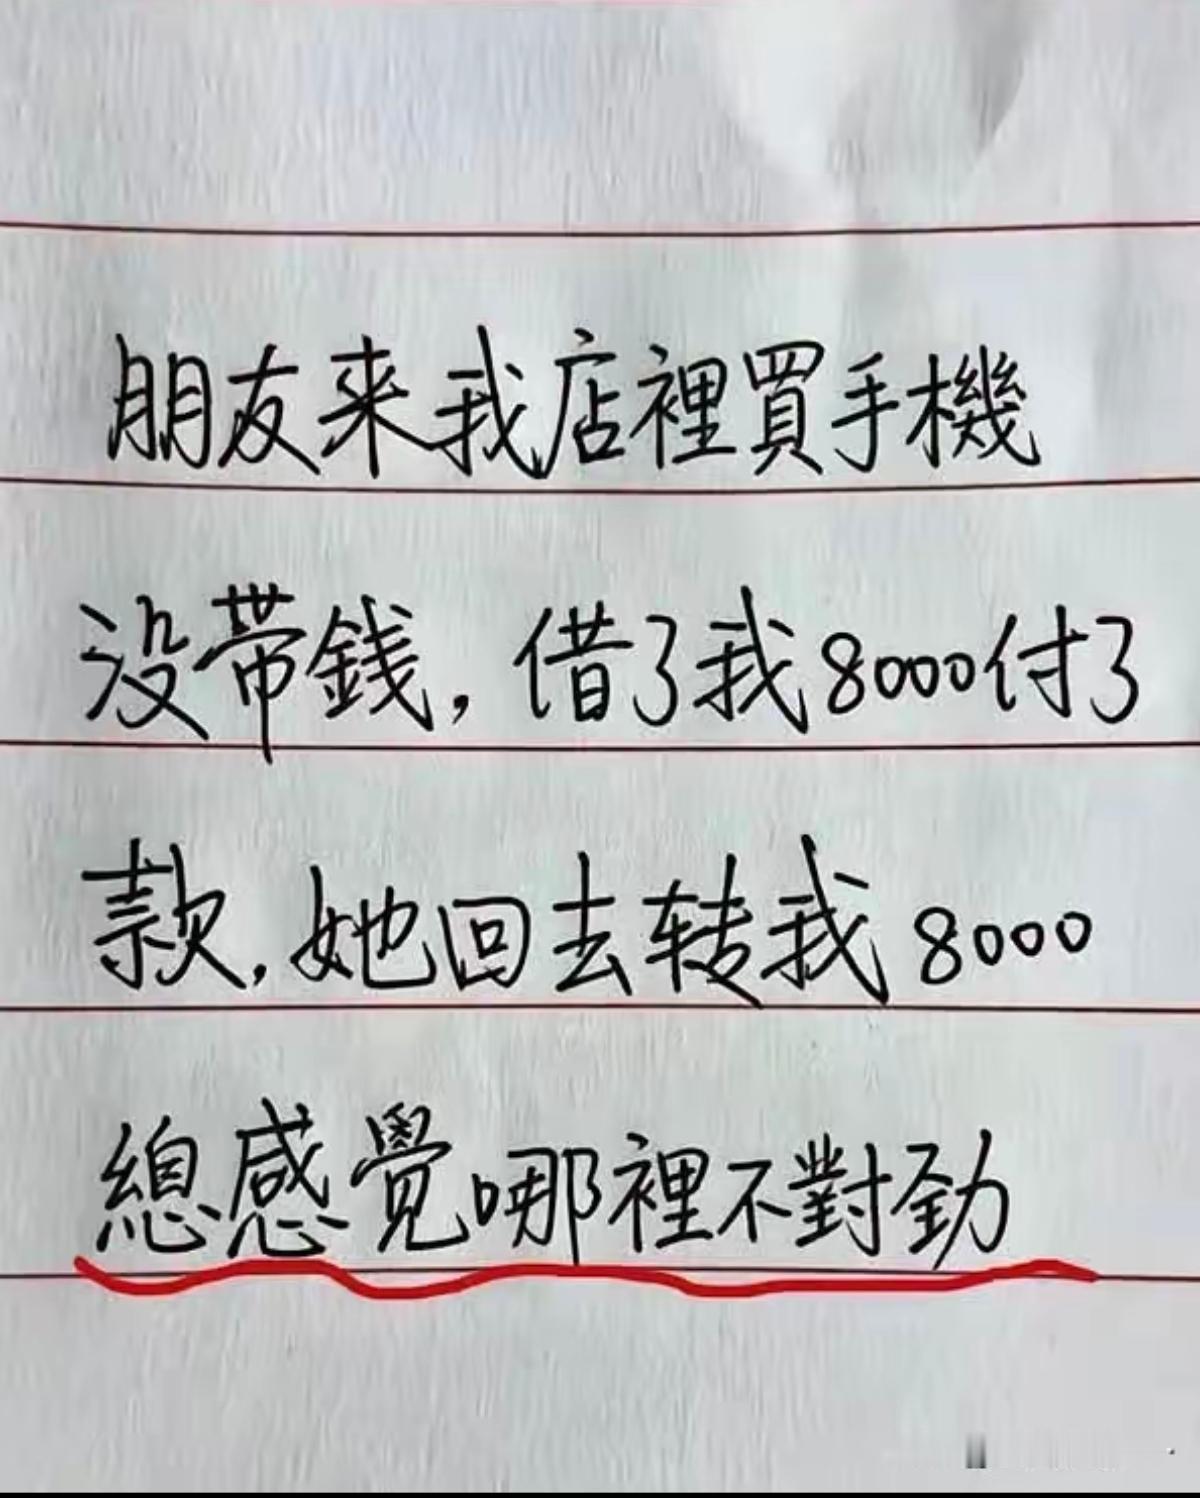 朋友来我店裡買手機
没带錢，借了我8000付了
款，她回去转我8000
總感覺哪裡不對劲